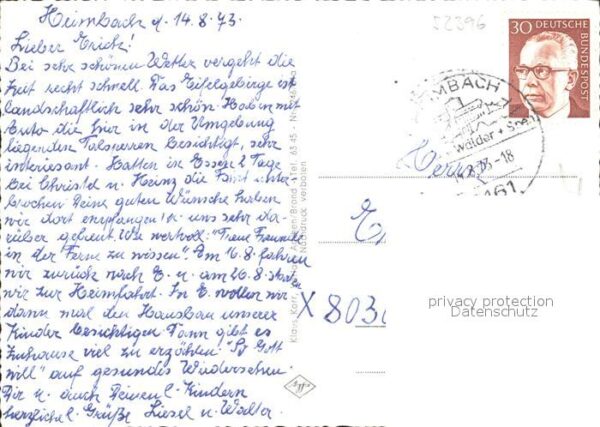 Heimbach d. 14.8.73.
Lieber Erich!
Bei sehr schönem Wetter vergeht die
Zeit recht schnell. Das Eifelgebirge ist
landschaftlich sehr schön. Haben mit
Auto die hier in der Umgebung
liegenden Talsperren besichtigt, sehr
interessant. Hatten in Essen 2 Tage
bei Christel u. Heinz die Fahrt unter
brochen. Deine guten Wünsche haben
wir dort empfangen u. uns sehr da-
rüber gefreut. Wie wertvoll: "Treue Freunde
in der Ferne zu wissen". Am 16.8. fahren
wir zurück nach E. u. am 20.8. starten
wir zur Heimfahrt. In E. wollen wir
dann mal den Hausbau unserer
Kinder besichtigen. Dann gibt es
Zuhause viel zu erzählen. "So Gott
will" auf gesundes Wiedersehen.
Dir u. auch Deinen l. Kindern
herzliche Grüße Liesel u. Walter.
52396
30 DEUTSCHE
BUNDESPOST
MBACH
Wälder + See
-18
5161
Herrn
X 803
Nachdruck verboten
Agfa
privacy protection
Datenschutz